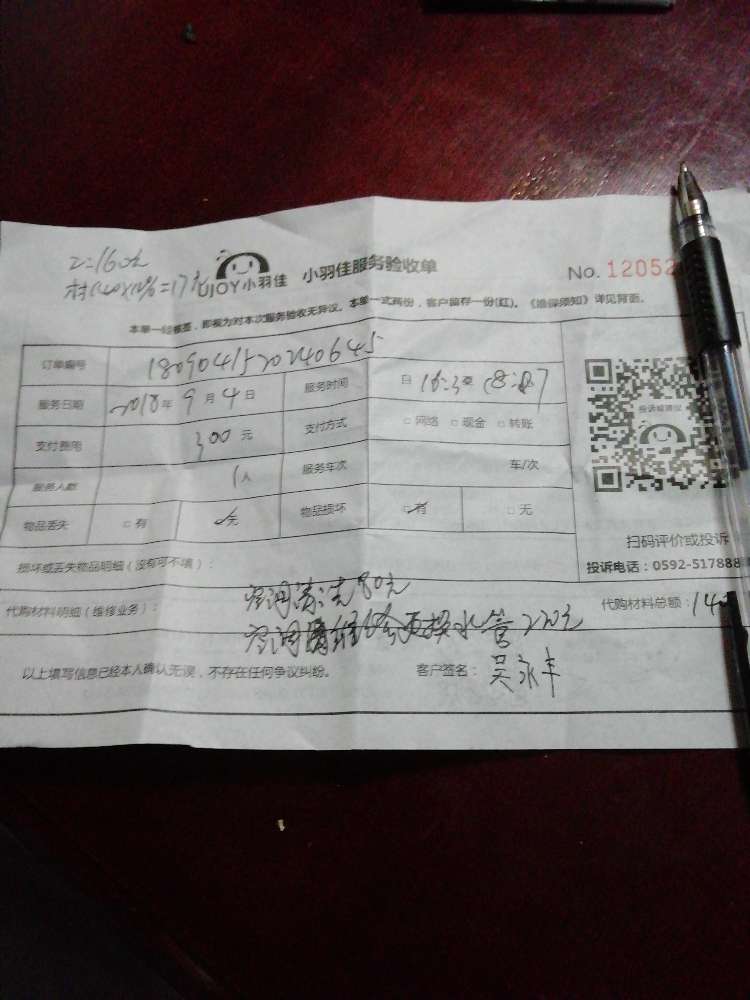 工=160元
UJOY小羽佳 小羽佳服务验收单 No. 12052
本单一经签签，即视为对本次服务验收无异议。本单一式两份，客户留存一份(红)。《维保须知》详见背面。
订单编号 1809041520240645
服务日期 2018年 9月 4日 服务时间 自 16:30
支付费用 300元 支付方式 □网络 □现金 □转账
服务人数 1人 服务车次 车/次
物品丢失 □有 □无 物品损坏 □有 □无
投诉或建议
扫码评价或投诉
投诉电话：0592-517888
损坏或丢失物品明细（没有可不填）：
代购材料明细（维修业务）： 空调清洗80元 代购材料总额：140
空调 更换水管220元
以上填写信息已经本人确认无误，不存在任何争议纠纷。 客户签名：吴永丰